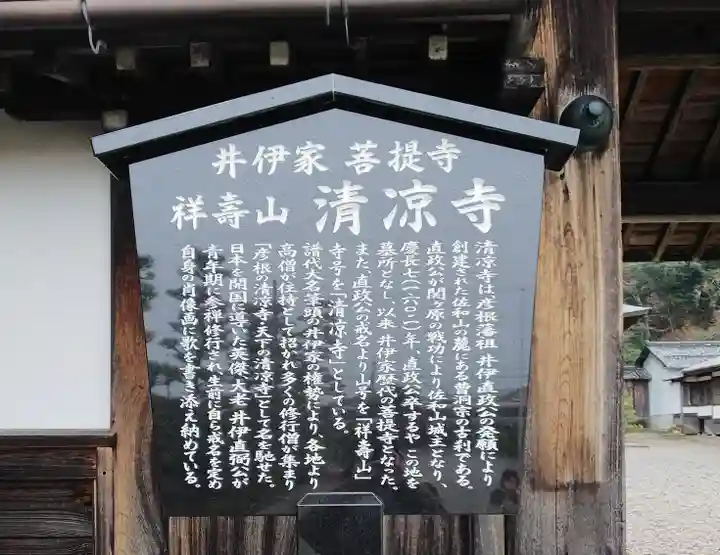 井伊家 菩提寺
祥壽山 清凉寺
清凉寺は彦根藩祖 井伊直政公の発願により
創建された佐和山の麓にある曹洞宗の古刹である。
直政公が関ヶ原の戦功により佐和山城主となり、
慶長七（一六〇二）年、直政公卒するや この地を
墓所となし、以来 井伊家歴代の菩提寺となった。
また、直政公の戒名より山号を「祥壽山」
寺号を「清凉寺」としている。
譜代大名筆頭の井伊家の権勢により、各地より
高僧が住持として招かれ多くの修行僧が集まり
「彦根の清凉寺・天下の清凉寺」として名を馳せた。
日本を開国に導いた英傑、大老 井伊直弼公が
青年期に参禅修行され生前に自ら戒名を定め
自身の肖像画に歌を書き添え納めている。